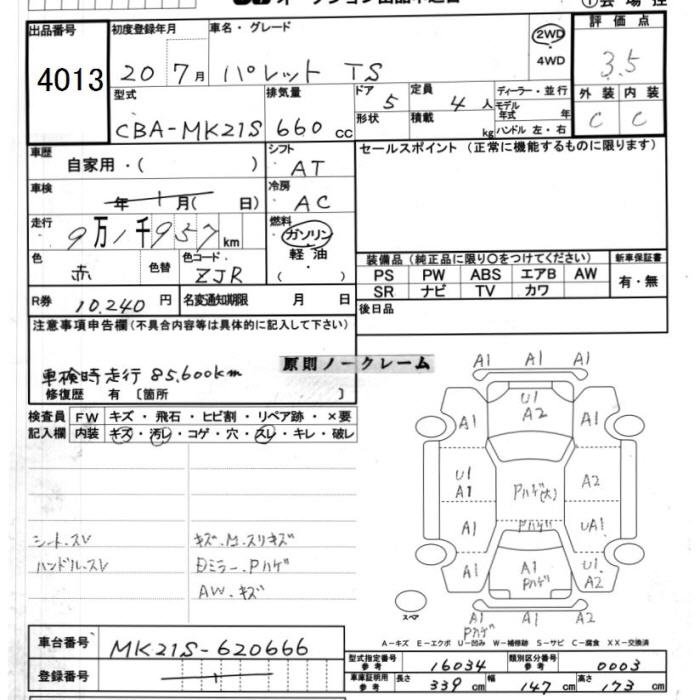 出品番号
4013
初度登録年月
20 7月
車名・グレード
パレット TS
2WD
4WD
評価点
3.5
型式
CBA-MK21S
排気量
660 cc
ドア
5
形状
定員
4 人
積載
kg
ディーラー・並行
モデル年式 年
ハンドル 左・右
外装 内装
C C
車歴
自家用・( )
シフト
AT
セールスポイント (正常に機能するものに限ります)
車検
年 1 月( 日)
冷房
AC
走行
9万1千957km
燃料
ガソリン
軽油
・( )
色
赤
色替
色コード
ZJR
装備品 (純正品に限り○をつけてください)
新車保証書
PS PW ABS エアB AW
SR ナビ TV カワ
有・無
R券 10,240円
名変通知期限 月 日
後日品
注意事項申告欄(不具合内容等は具体的に記入して下さい)
原則ノークレーム
車検時走行 85,600km
修復歴 有 [箇所 ]
検査員記入欄
FW キズ・飛石・ヒビ割・リペア跡・×要
内装 キズ・汚レ・コゲ・穴・スレ・キレ・破レ
シート.スレ
ハンドル.スレ
キズ.M.スリキズ
Dミラー.Pハゲ
AW.キズ
A1 A1 A1
A1 U1 A2 A1
U1 A1 Pハゲ(大) A2
A1 Pハゲ UA1
A1 A1 Pハゲ U1 A2
A1 A1 A2
Pハゲ
スペア
A-キズ E-エクボ U-凹み W-補修跡 S-サビ C-腐食 XX-交換済
車台番号
MK21S-620666
登録番号
型式指定番号 参考 16034
類別区分番号 参考 0003
車庫証明用 参考 長さ 339 cm 幅 147 cm 高さ 173 cm